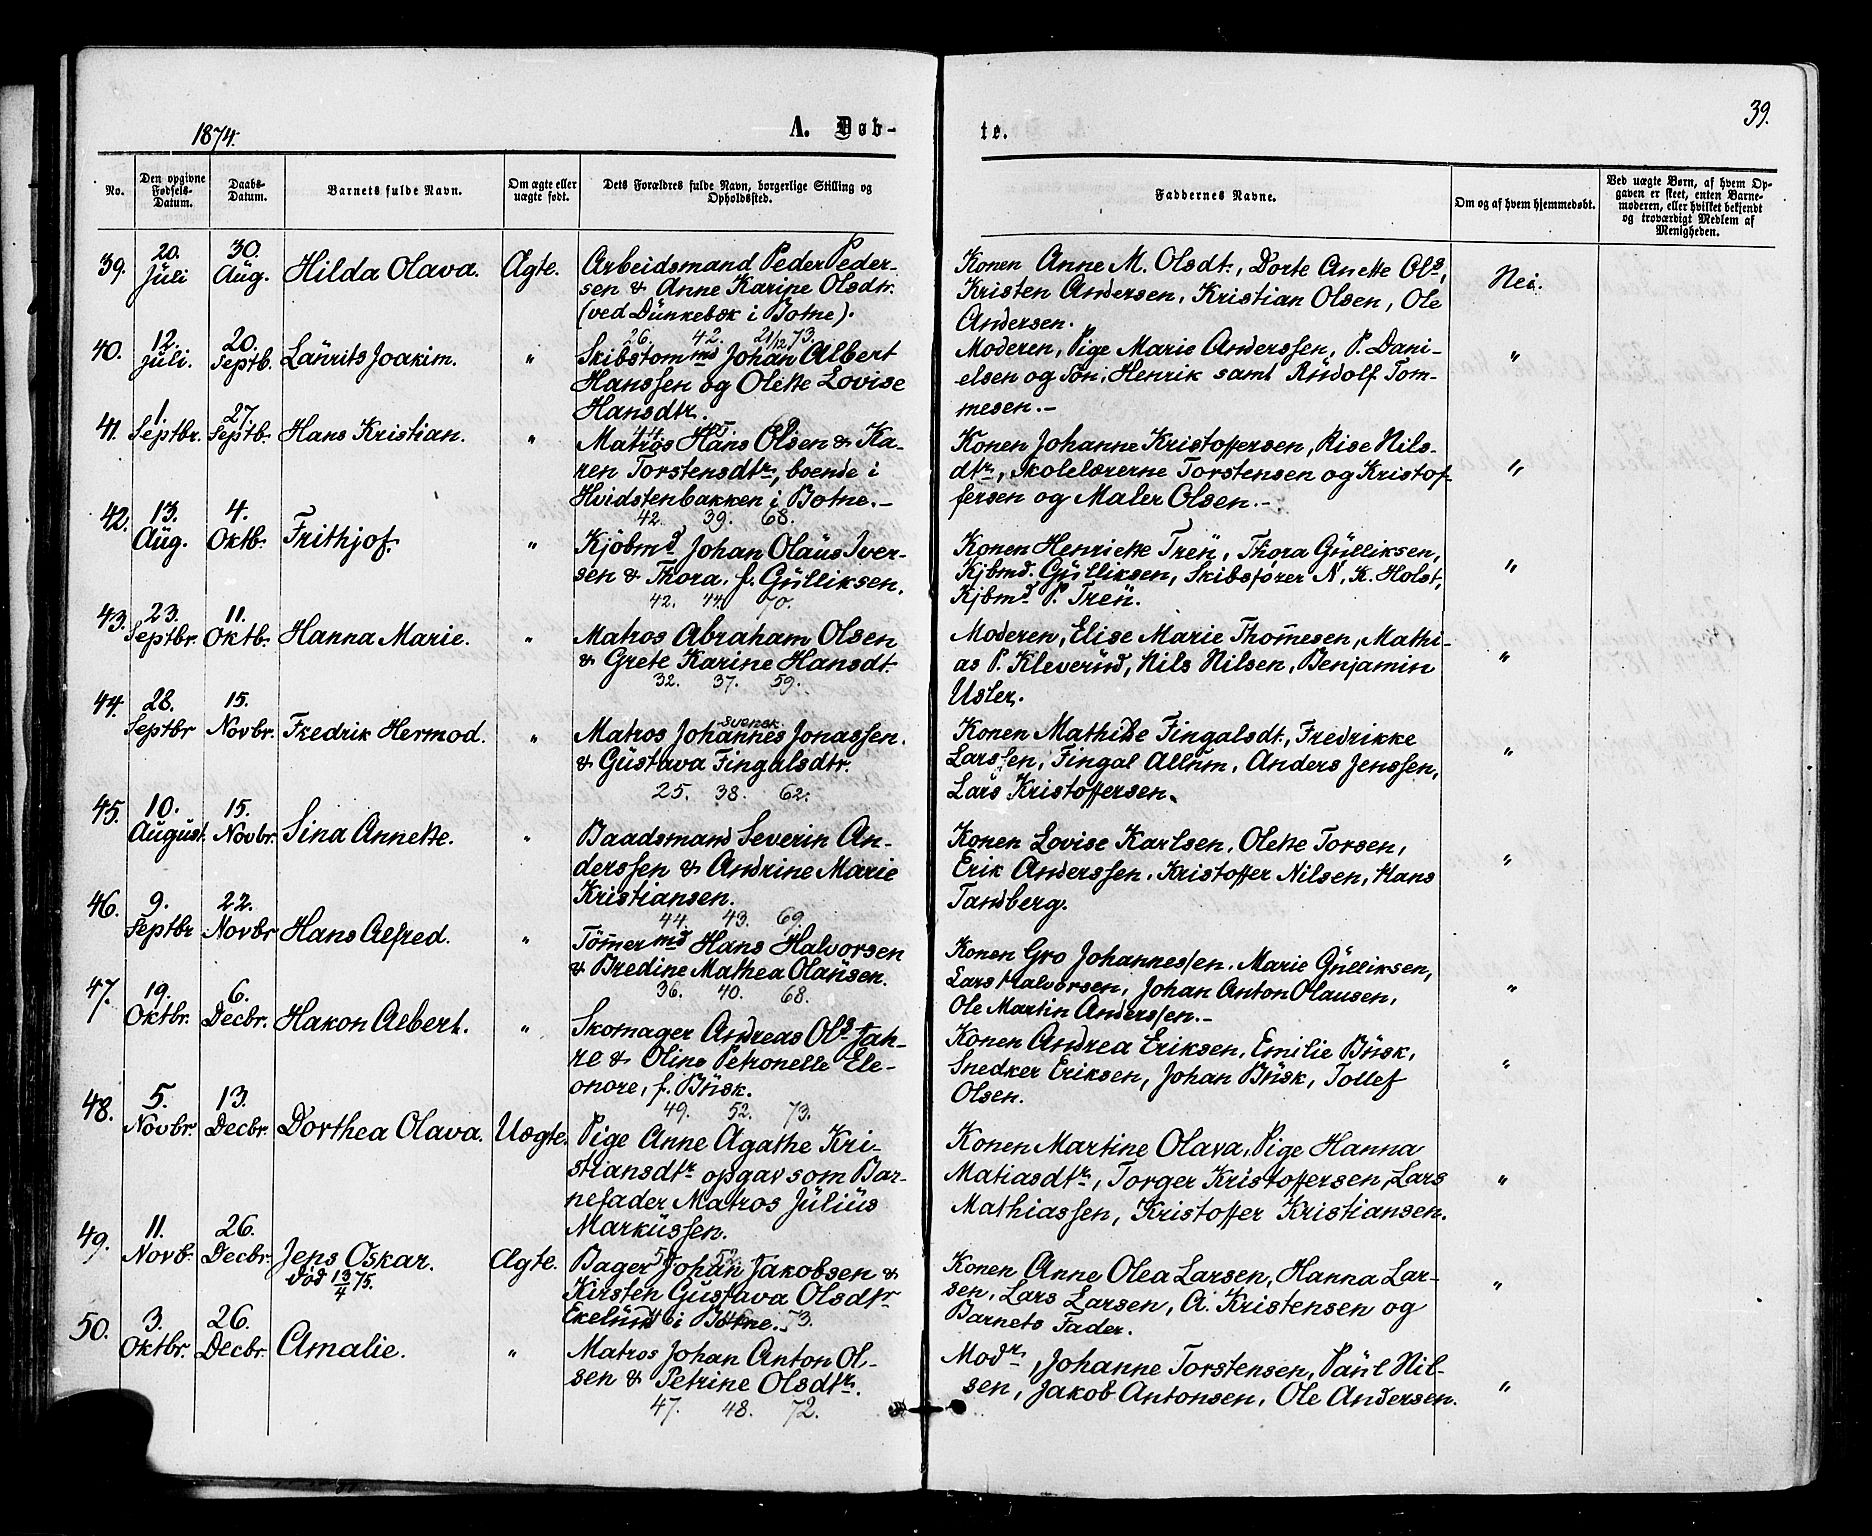 1874.
A. Døb-
te.
39.
No.
Den opgivne Fødsels-Datum.
Daabs-Datum.
Barnets fulde Navn.
Om ægte eller uægte født.
Dets Forældres fulde Navn, borgerlige Stilling og Opholdssted.
Faddernes Navne.
Om og af hvem hjemmedøbt.
Ved uægte Børn, af hvem Opgaven er skeet, enten Barnemoderen, eller hvilket bekjendt og troværdigt Medlem af Menigheden.
39. 20. Juli 30. Aug. Hilda Olava. Ægte.
Arbeidsmand Peder Peder-
sen & Anne Karine Olsdtr.
(ved Dunkebæk i Botne).
26. 42. 21/12 73.
Konen Anne M. Olsdt., Dorte Anette Ols,
Kristen Andersen, Kristian Olsen, Ole
Andersen.
Nei.
40. 12. Juli. 20. Septb. Laurits Joakim. "
Skibstømmd Johan Albert
Hanssen og Olette Lovise
Hansdtr.
Moderen, Pige Marie Anderssen, P. Dani-
elsen og Søn, Henrik samt Rudolf Tom-
mesen.-
"
41. 1. Septbr. 27. Septb. Hans Kristian. "
Matros Hans Olsen & Ka-
ren Torstensdtr, boende i
Hvidstenbakken i Botne.-
42. 39. 68.
Konen Johanne Kristoffersen, Rise Nils-
dtr, Skolelærerne Torstensen og Kristof-
fersen og Maler Olsen.-
"
42. 13. Aug. 4. Oktb. Frithjof. "
Kjøbmd Johan Olaus Iver-
sen & Thora, f. Gulliksen.
42. 44. 70.
Konen Henriette Treu, Thora Gulliksen,
Kjbmd. Gulliksen, Skibsfører N. K. Holst,
Kjbmd P. Treu.
"
43. 23. Septbr. 11. Oktb. Hanna Marie. "
Matros Abraham Olsen
& Grete Karine Hansdt.
32. 37. 59.
Moderen, Elise Marie Thomesen, Mathi-
as P. Kleverud, Nils Nilsen, Benjamin
Usler.
"
44. 28. Septbr 15. Novbr. Fredrik Hermod. "
svensk
Matros Johannes Jonassen.
& Gustava Fingalsdtr.
25. 38. 62.
Konen Mathilde Fingalsdt, Fredrikke
Larssen, Fingal Allum, Anders Jenssen,
Lars Kristoffersen.
"
45. 10. August. 15. Novbr. Sina Annette. "
Baadsmand Severin An-
derssen & Andrine Marie
Kristiansen.
44. 43. 69.
Konen Lovise Karlsen, Olette Torsen,
Erik Anderssen, Kristoffer Nilsen, Hans
Tandberg.
"
46. 9. Septbr 22. Novbr Hans Alfred. "
Tømermd Hans Halvorsen
& Bredine Mathea Olausen.
36. 40. 68.
Konen Gro Johannessen, Marie Gulliksen,
Lars Halvorsen, Johan Anton Olausen,
Ole Martin Anderssen.-
"
47. 19. Oktbr. 6. Decbr. Hakon Albert. "
Skomager Andreas Ols Jah-
re & Oline Petronelle Ele-
onore, f. Busk.
49. 52. 73.
Konen Andrea Eriksen, Emilie Busk,
Snedker Eriksen, Johan Busk, Tollef
Olsen.
"
48. 5. Novbr. 13. Decbr. Dorthea Olava. Uægte.
Pige Anne Agathe Kri-
stiansdtr opgav som Bar-
nefader Matros Julius
Markussen.
Konen Martine Olava, Pige Hanna
Matiasdtr, Torger Kristoffersen, Lars
Mathiassen, Kristoffer Kristiansen.
"
49. 11. Novb. 26. Decbr. Jens Oskar. Ægte.
død 13/4 75.
Bager Johan Jakobsen &
Kirsten Gustava Olsdtr
Ekelund i Botne.
46. 46. 73.
Konen Anne Olea Larsen, Hanna Lar-
sen, Lars Larsen, A. Kristensen og
Barnets Fader.
"
50. 3. Oktbr. 26. Decbr. Amalie. "
Matros Johan Anton Ol-
sen & Petrine Olsdtr.
47. 48. 72.
Modr, Johanne Torstensen, Paul Nil-
sen, Jakob Antonsen, Ole Andersen.
"